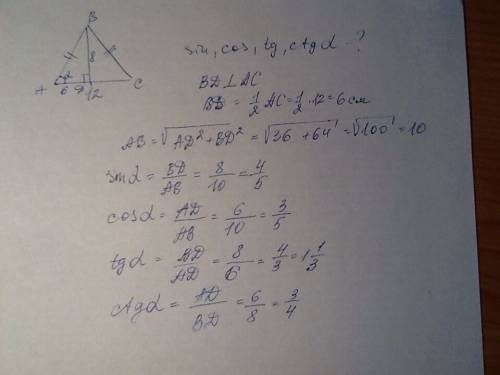 B
8
A α 6 D 12 C
sin, cos, tg, ctg α - ?
BD ⊥ AC
BD = 1/2 AC = 1/2 · 12 = 6 см
AB = √(AD² + BD²) = √(36 + 64) = √100 = 10
sin α = BD/AB = 8/10 = 4/5
cos α = AD/AB = 6/10 = 3/5
tg α = BD/AD = 8/6 = 4/3 = 1 1/3
ctg α = AD/BD = 6/8 = 3/4